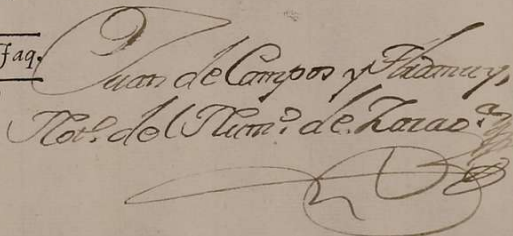 Faq.
Juan de Campos y
Not.º del Num.º de Zarag.ª